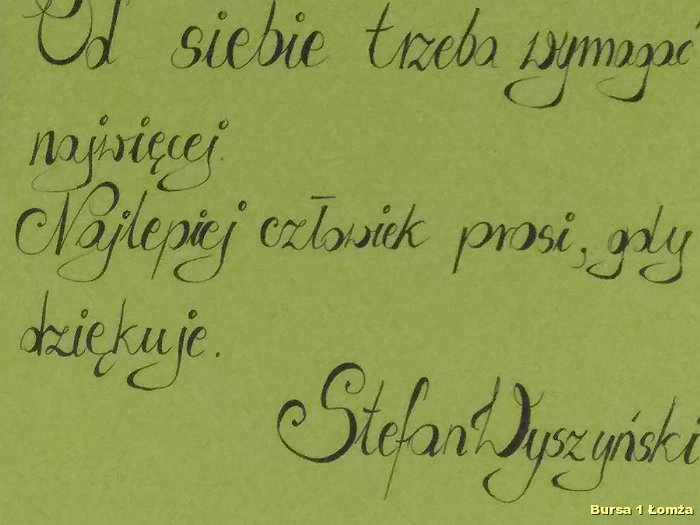 Od siebie trzeba wymagać
najwięcej.
Najlepiej człowiek prosi, gdy
dziękuje.
Stefan Wyszyński
Bursa 1 Łomża